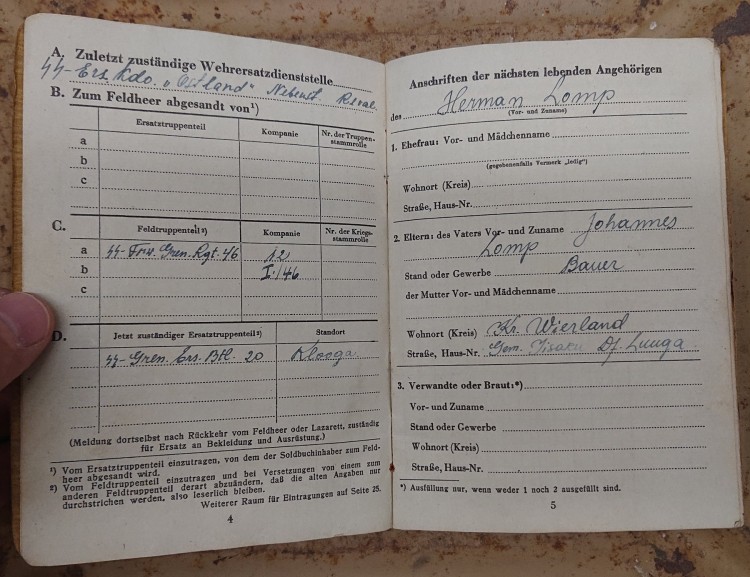 A. Zuletzt zuständige Wehrersatzdienststelle
SS-Ers. Kdo. „Ostland" Nebenst. Reval
B. Zum Feldheer abgesandt von¹)
Ersatztruppenteil
Kompanie
Nr. der Truppen-
stammrolle
a
b
c
C.
Feldtruppenteil²)
Kompanie
Nr. der Kriegs-
stammrolle
a SS-Frw. Gren. Rgt. 46 12
b I./46
c
D.
Jetzt zuständiger Ersatztruppenteil²)
Standort
SS-Gren. Ers. Btl. 20 Klooga
(Meldung dortselbst nach Rückkehr vom Feldheer oder Lazarett, zuständig
für Ersatz an Bekleidung und Ausrüstung.)
¹) Vom Ersatztruppenteil einzutragen, von dem der Soldbuchinhaber zum Feld-
heer abgesandt wird.
²) Vom Feldtruppenteil einzutragen und bei Versetzungen von einem zum
anderen Feldtruppenteil derart abzuändern, daß die alten Angaben nur
durchstrichen werden, also leserlich bleiben.
Weiterer Raum für Eintragungen auf Seite 25.
4
Anschriften der nächsten lebenden Angehörigen
des Herman Lomp
(Vor- und Zuname)
1. Ehefrau: Vor- und Mädchenname
(gegebenenfalls Vermerk „ledig")
Wohnort (Kreis)
Straße, Haus-Nr.
2. Eltern: des Vaters Vor- und Zuname Johannes
Lomp
Stand oder Gewerbe Bauer
der Mutter Vor- und Mädchenname
Wohnort (Kreis) Kr. Wierland
Straße, Haus-Nr. Gem. Iisaku Df. Luuga
3. Verwandte oder Braut:*)
Vor- und Zuname
Stand oder Gewerbe
Wohnort (Kreis)
Straße, Haus-Nr.
*) Ausfüllung nur, wenn weder 1 noch 2 ausgefüllt sind.
5